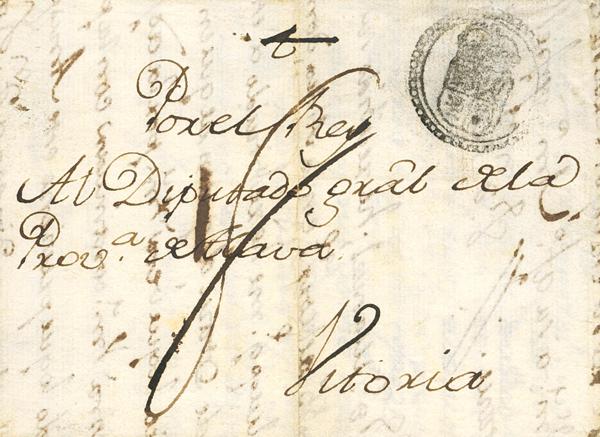 Por el Rey
Al Diputado grãl de la
Prov.ª de Alava.
Vitoria